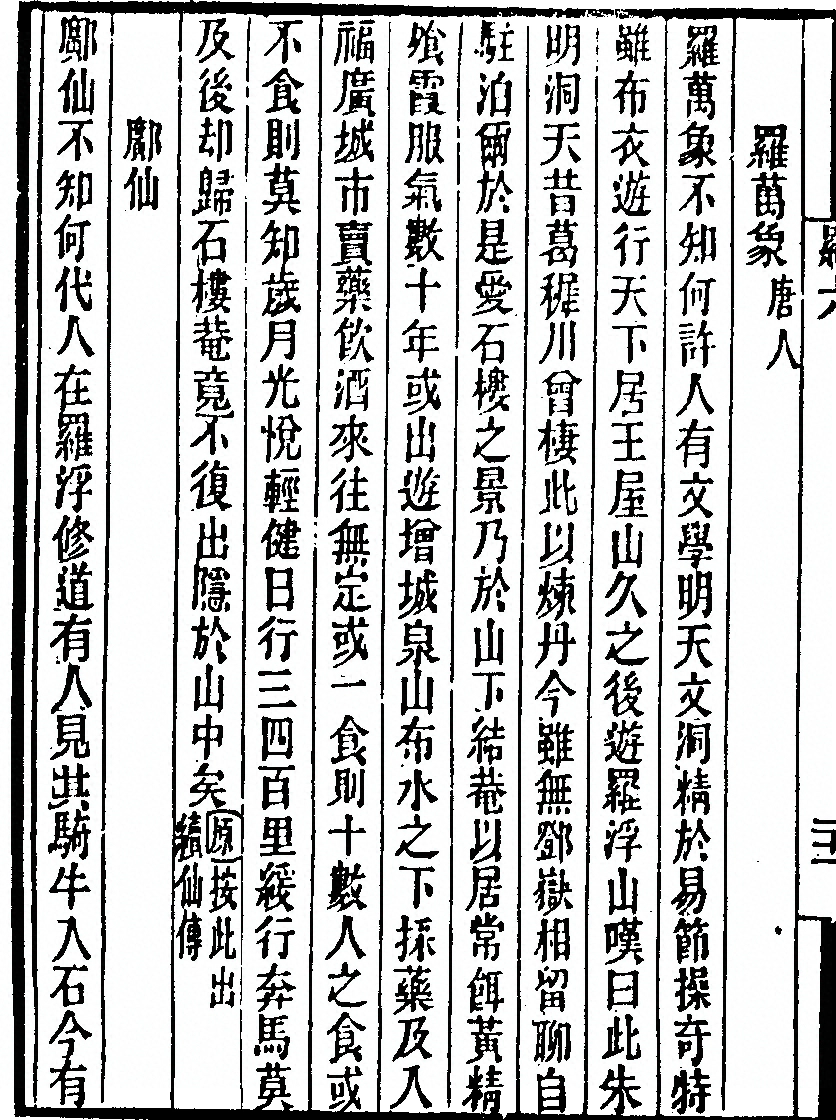 羅萬象唐人
羅萬象不知何許人有文學明天文洞精於易節操奇特
雖布衣遊行天下居王屋山久之後遊羅浮山嘆曰此朱
明洞天昔葛稚川曾棲此以煉丹今雖無鄧嶽相留聊自
駐泊爾於是愛石樓之景乃於山下結菴以居常餌黃精
飡霞服氣數十年或出遊增城泉山布水之下採藥及入
福廣城市賣藥飲酒來往無定或一食則十數人之食或
不食則莫知歲月光悅輕健日行三四百里緩行奔馬莫
及後却歸石樓菴竟不復出隱於山中矣原按此出
續仙傳
鄺仙
鄺仙不知何代人在羅浮修道有人見其騎牛入石今有